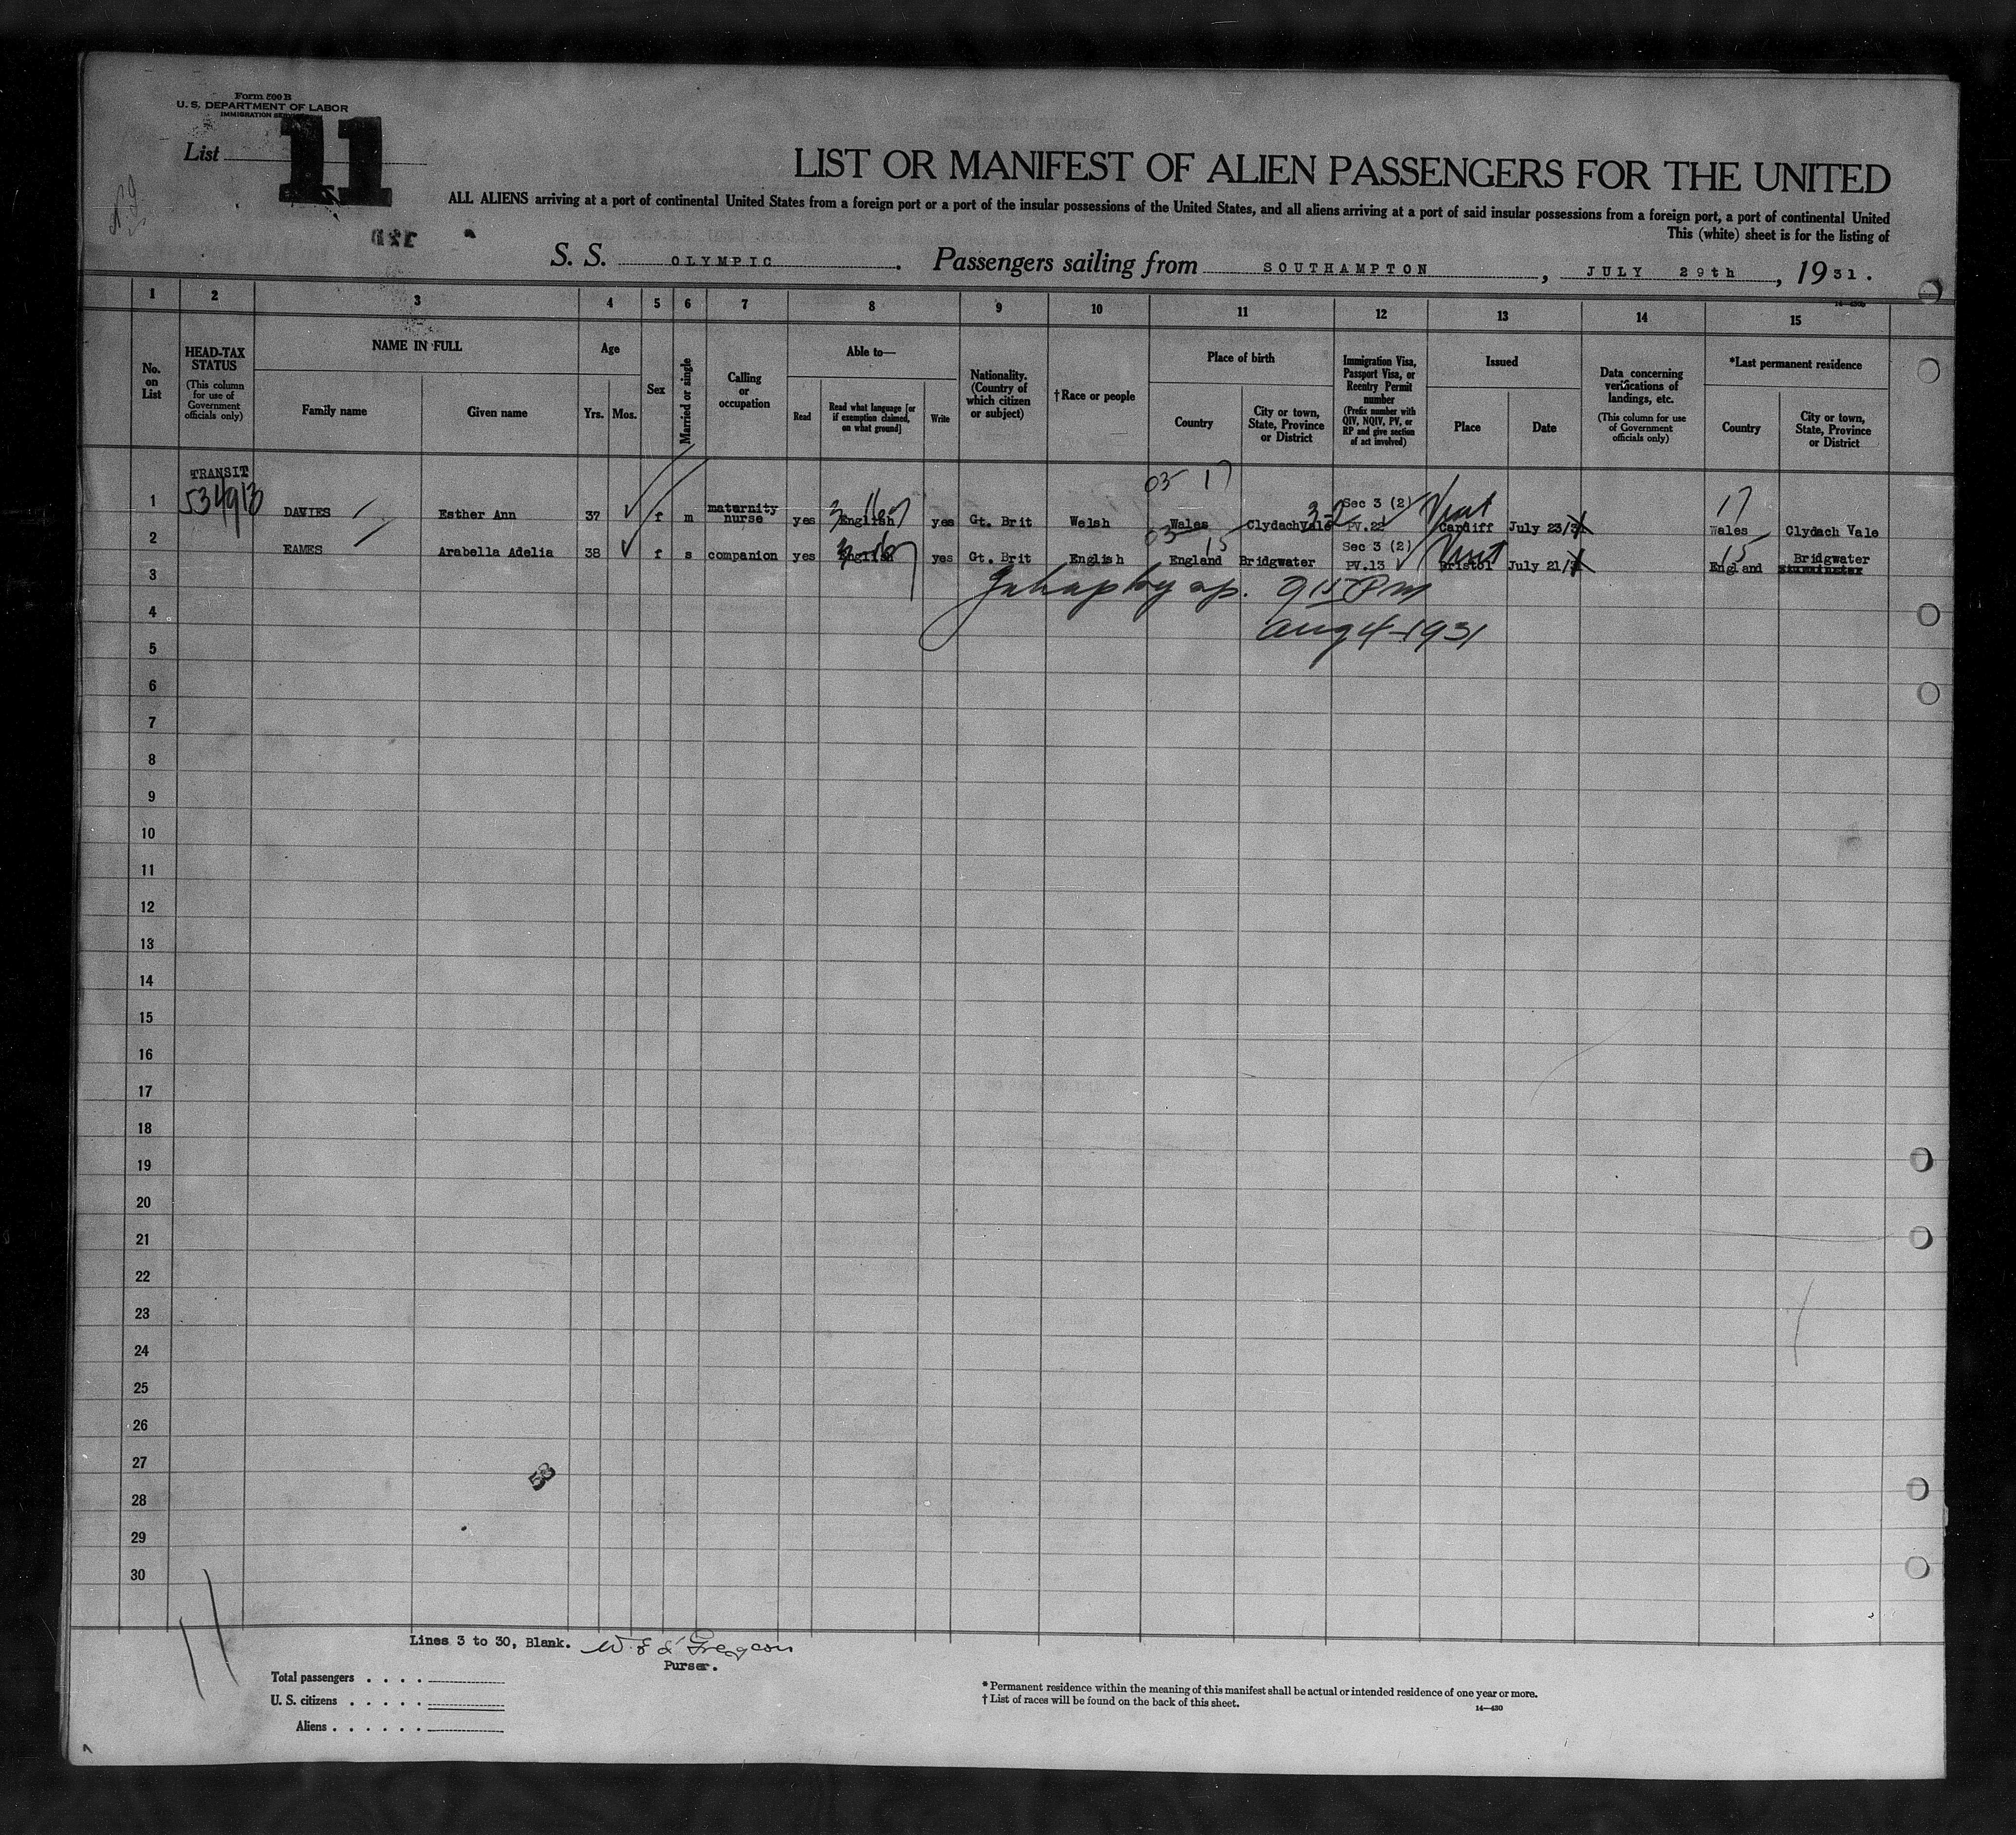 Form 500 B
U. S. DEPARTMENT OF LABOR
IMMIGRATION SERVICE
List 11
LIST OR MANIFEST OF ALIEN PASSENGERS FOR THE UNITED
ALL ALIENS arriving at a port of continental United States from a foreign port or a port of the insular possessions of the United States, and all aliens arriving at a port of said insular possessions from a foreign port, a port of continental United
This (white) sheet is for the listing of
S. S. OLYMPIC. Passengers sailing from SOUTHAMPTON, JULY 29th, 1931.
1 2 3 4 5 6 7 8 9 10 11 12 13 14 15
No. on List
HEAD-TAX STATUS (This column for use of Government officials only)
NAME IN FULL
Family name
Given name
Age
Yrs. Mos.
Sex
Married or single
Calling or occupation
Able to—
Read
Read what language [or if exemption claimed, on what ground]
Write
Nationality. (Country of which citizen or subject)
†Race or people
Place of birth
Country
City or town, State, Province or District
Immigration Visa, Passport Visa, or Reentry Permit number (Prefix number with QIV, NQIV, PV, or RP and give section of act involved)
Issued
Place
Date
Data concerning verifications of landings, etc. (This column for use of Government officials only)
*Last permanent residence
Country
City or town, State, Province or District
TRANSIT
03 17
1 DAVIES Esther Ann 37 f m maternity nurse yes English yes Gt. Brit Welsh Wales Clydach Vale Sec 3 (2) PV.22 Cardiff July 23/31 17 Wales Clydach Vale
03 15
2 EAMES Arabella Adelia 38 f s companion yes English yes Gt. Brit English England Bridgwater Sec 3 (2) PV.13 Bristol July 21/31 15 England Bridgwater
3
9 15 Pm
4
Aug 4-1931
5
6
7
8
9
10
11
12
13
14
15
16
17
18
19
20
21
22
23
24
25
26
27
53
28
29
30
11
Lines 3 to 30, Blank.
Purser.
Total passengers
U. S. citizens
Aliens
* Permanent residence within the meaning of this manifest shall be actual or intended residence of one year or more.
† List of races will be found on the back of this sheet.
14—430